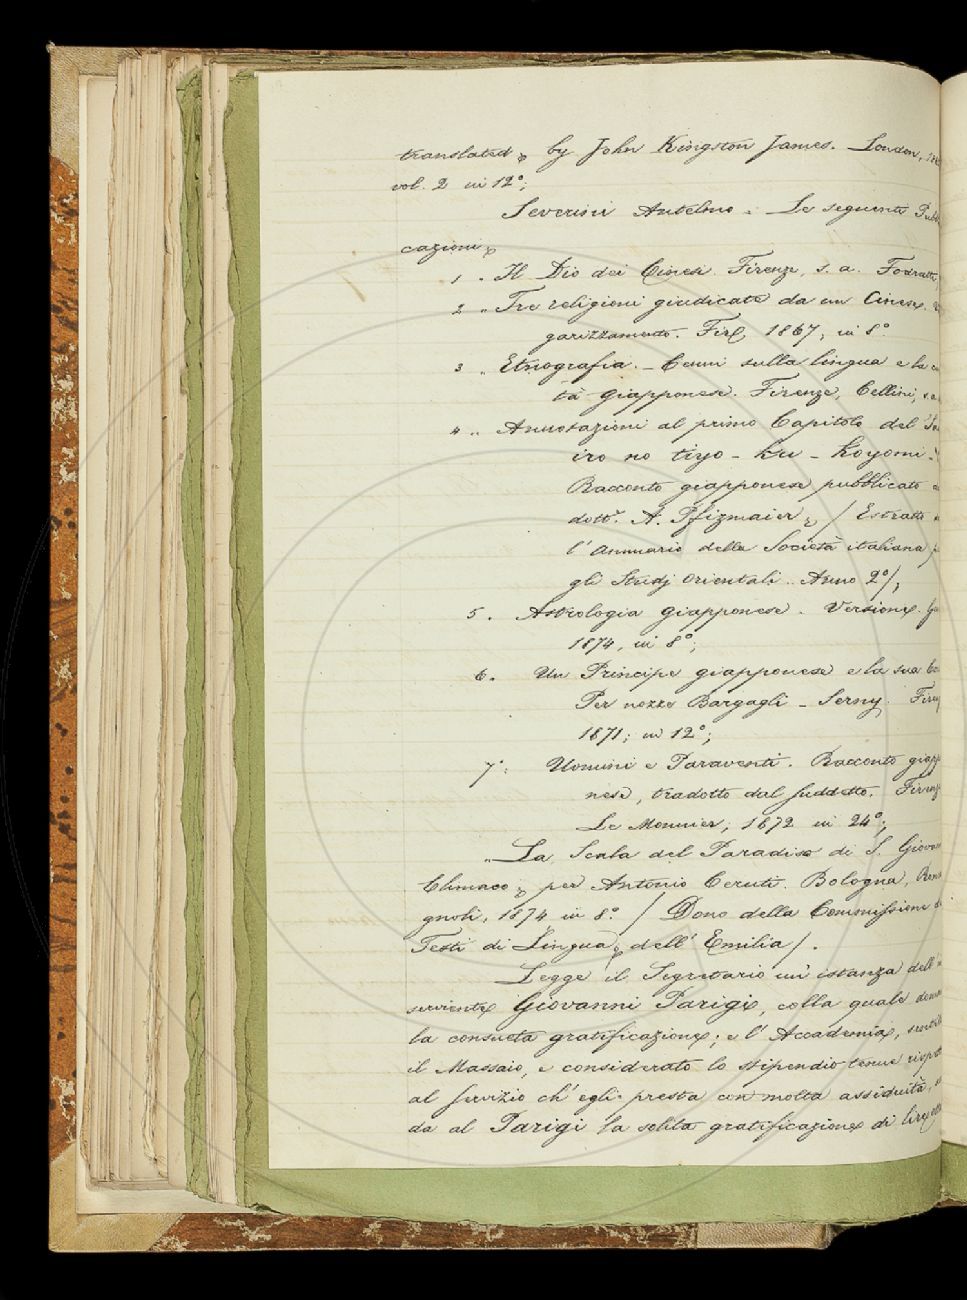 translated by John Kingston James. London,
vol. 2 in 12°;
Severini Antelmo - Le seguenti Pubbli
cazioni
1. Il Dio dei Cinesi. Firenze, s. a. Fodratti
2. Tre religioni giudicate da un Cinese.
garizzamento. Fir, 1867, in 8°
3. Etnografia. - Cenni sulla lingua e la
tà giapponese. Firenze, Cellini, s. a.
4. Annotazioni al primo Capitolo del
iro no tiyo - ku - koyomi -
Racconto giapponese pubblicato
dott. A. Pfizmaier / Estratto
l'Annuario della Società italiana
gli Studj Orientali. Anno 2°/;
5. Astrologia giapponese. Versione.
1874, in 8°;
6. Un Principe giapponese e la sua
Per nozze Bargagli - Serny. Firen
1871; in 12°;
7. Uomini e Paraventi. Racconto giappo
nese, tradotto dal suddetto. Firenze
Le Monnier; 1872 in 24°;
La Scala del Paradiso di S. Giovan
Climaco per Antonio Ceruti. Bologna, Roma
gnoli, 1874 in 8°. / Dono della Commissione
Testi di Lingua dell'Emilia /.
Legge il Segretario un'istanza dell'
serviente Giovanni Parigi, colla quale
la consueta gratificazione; e l'Accademia,
il Massaio, e considerato lo stipendio tenue
al servizio ch'egli presta con molta assiduità,
da al Parigi la solita gratificazione di lire